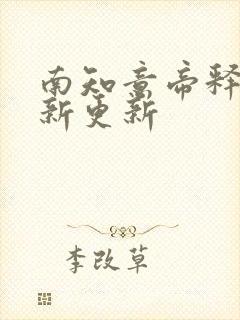 南知意帝释
新更新
李改草